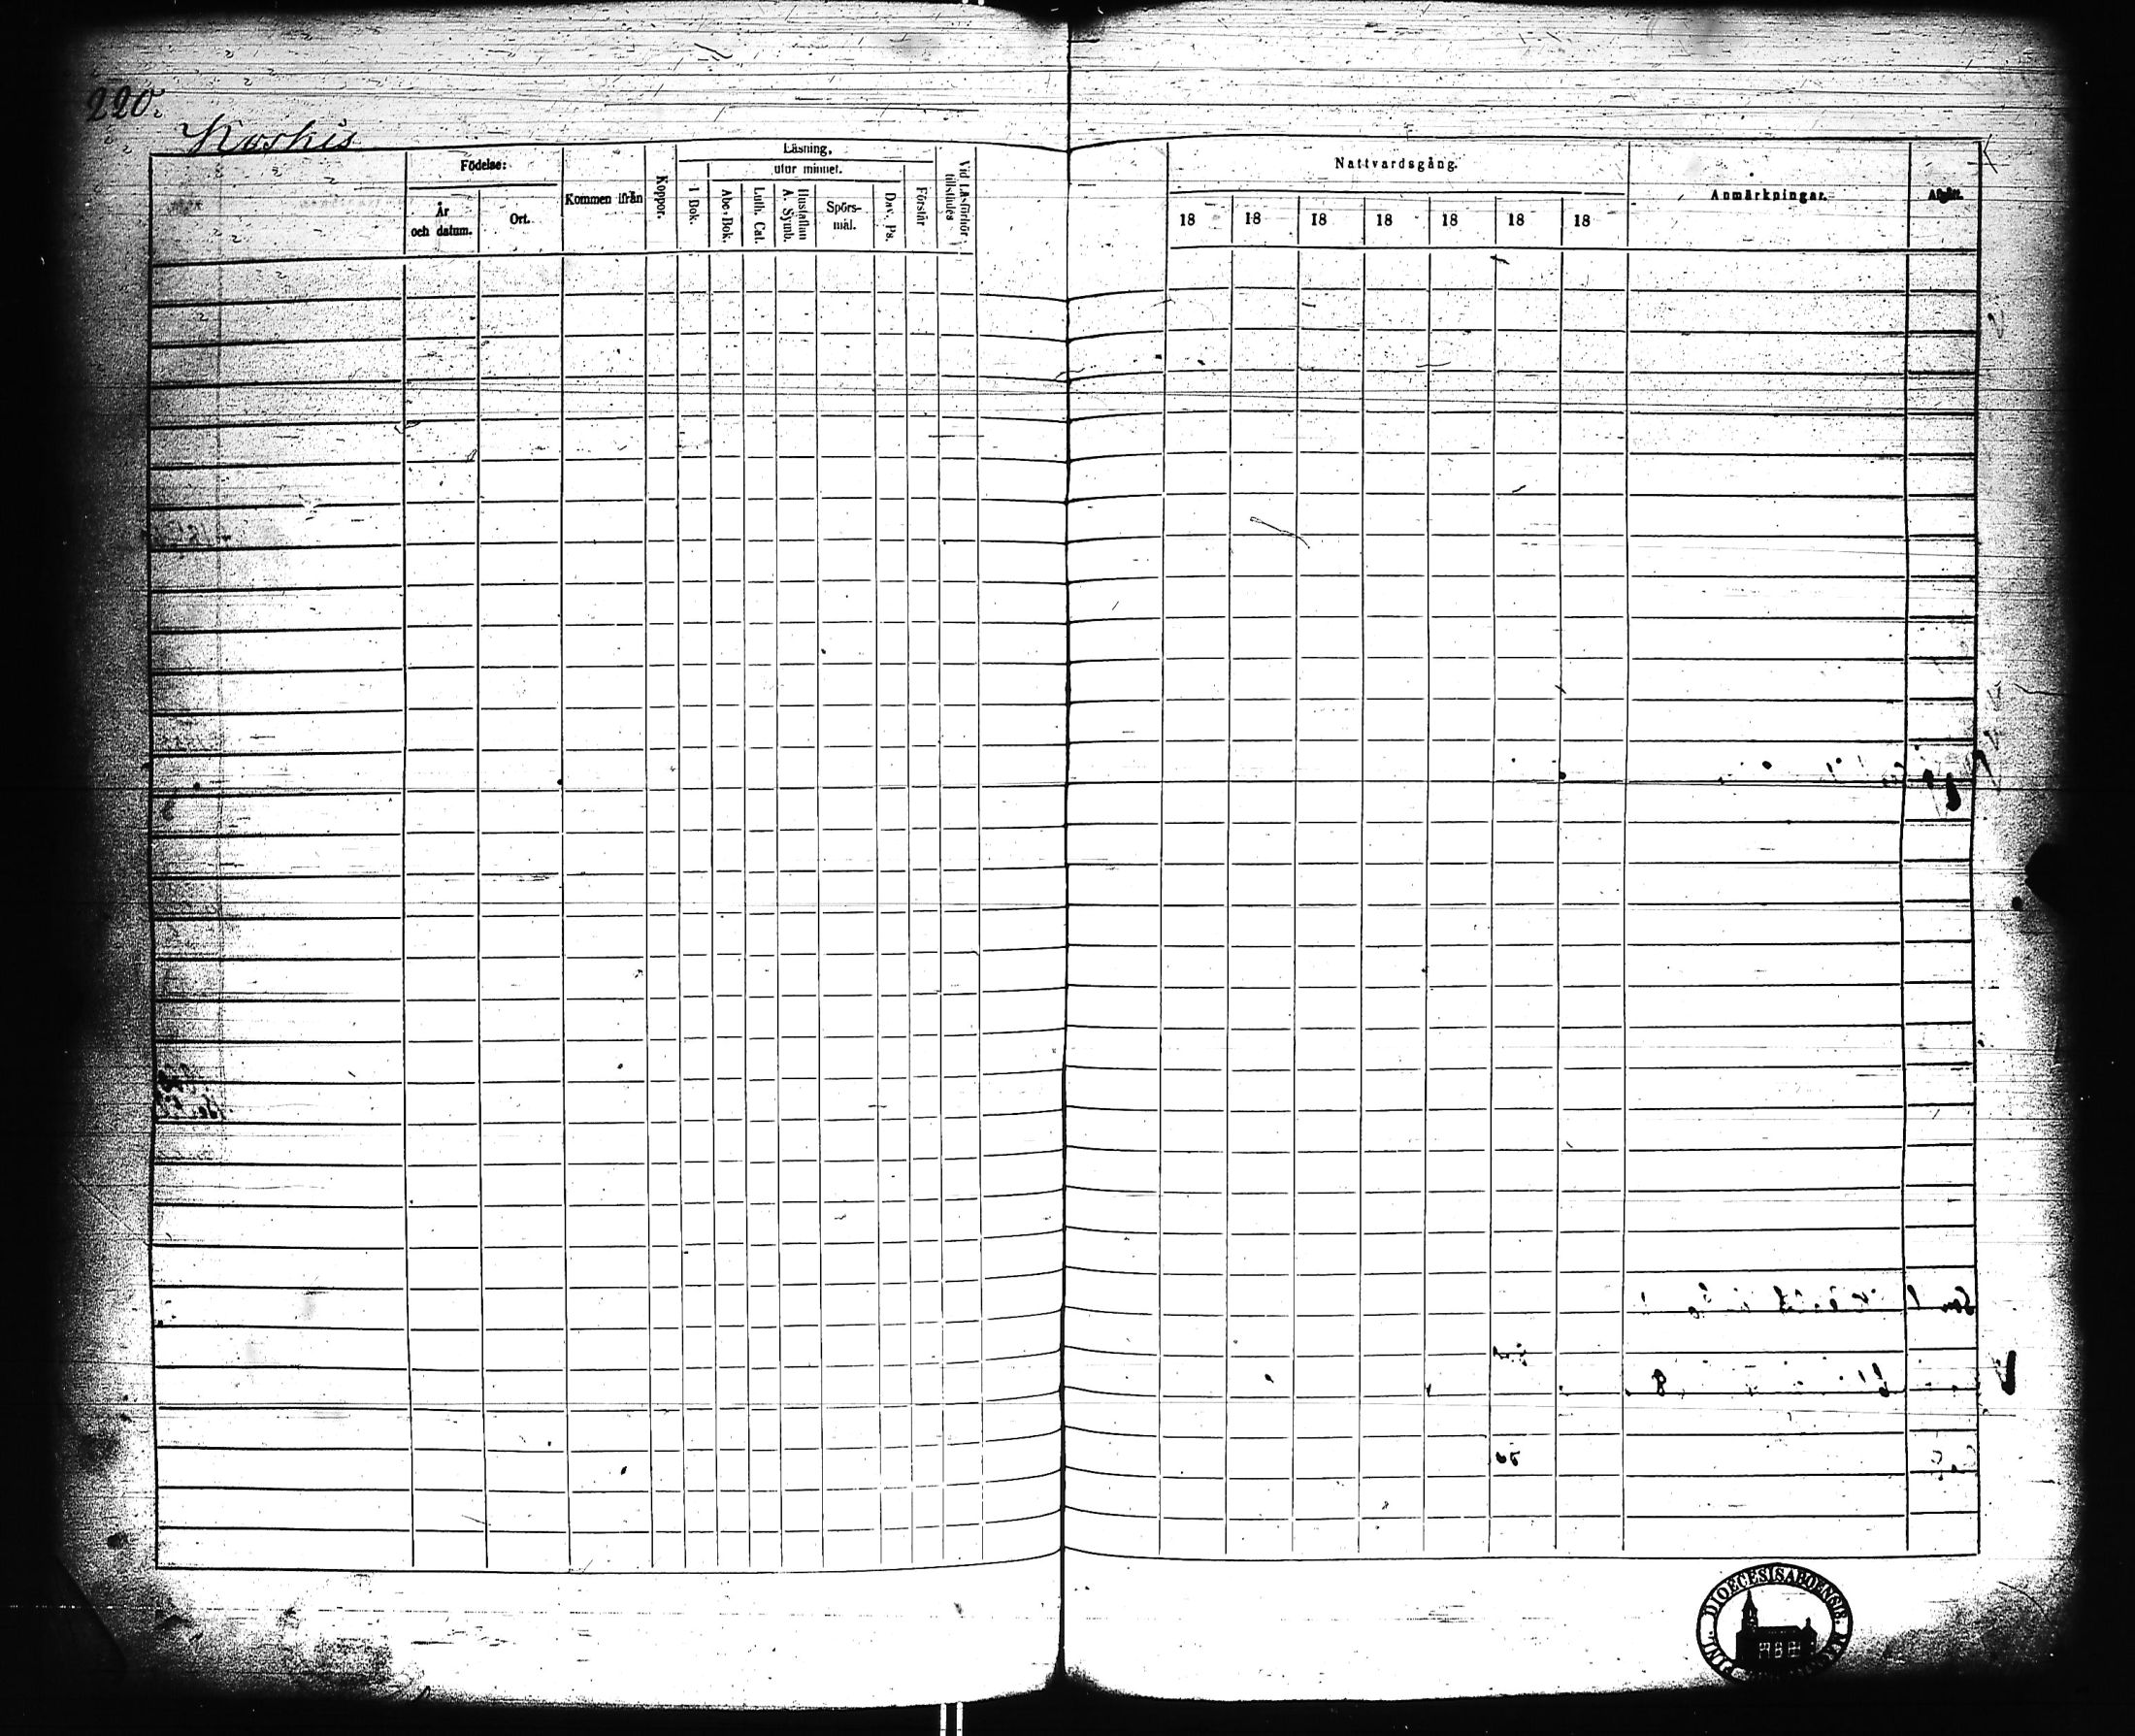 220.
Koskis
Födelse:
År och datum.
Ort.
Kommen ifrån
Koppor.
Läsning,
utur minnet.
I Bok.
Abc-Bok.
Luth. Cat.
Hustaflan A. Symb.
Spörs-mål.
Dav. Ps.
Förstår
Vid Läsförhör tillstädes
Nattvardsgång.
18 18 18 18 18 18 18
Anmärkningar.
Afgått.
DIOECESIS ABOENSIS